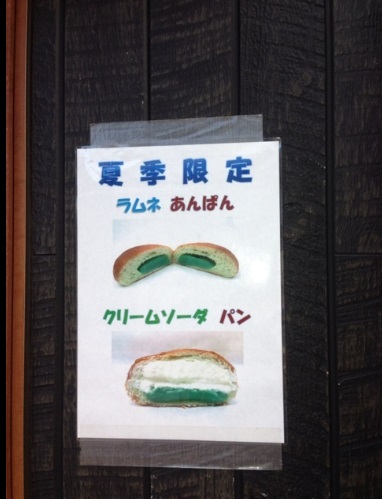 夏季限定
ラムネ あんぱん
クリームソーダ パン